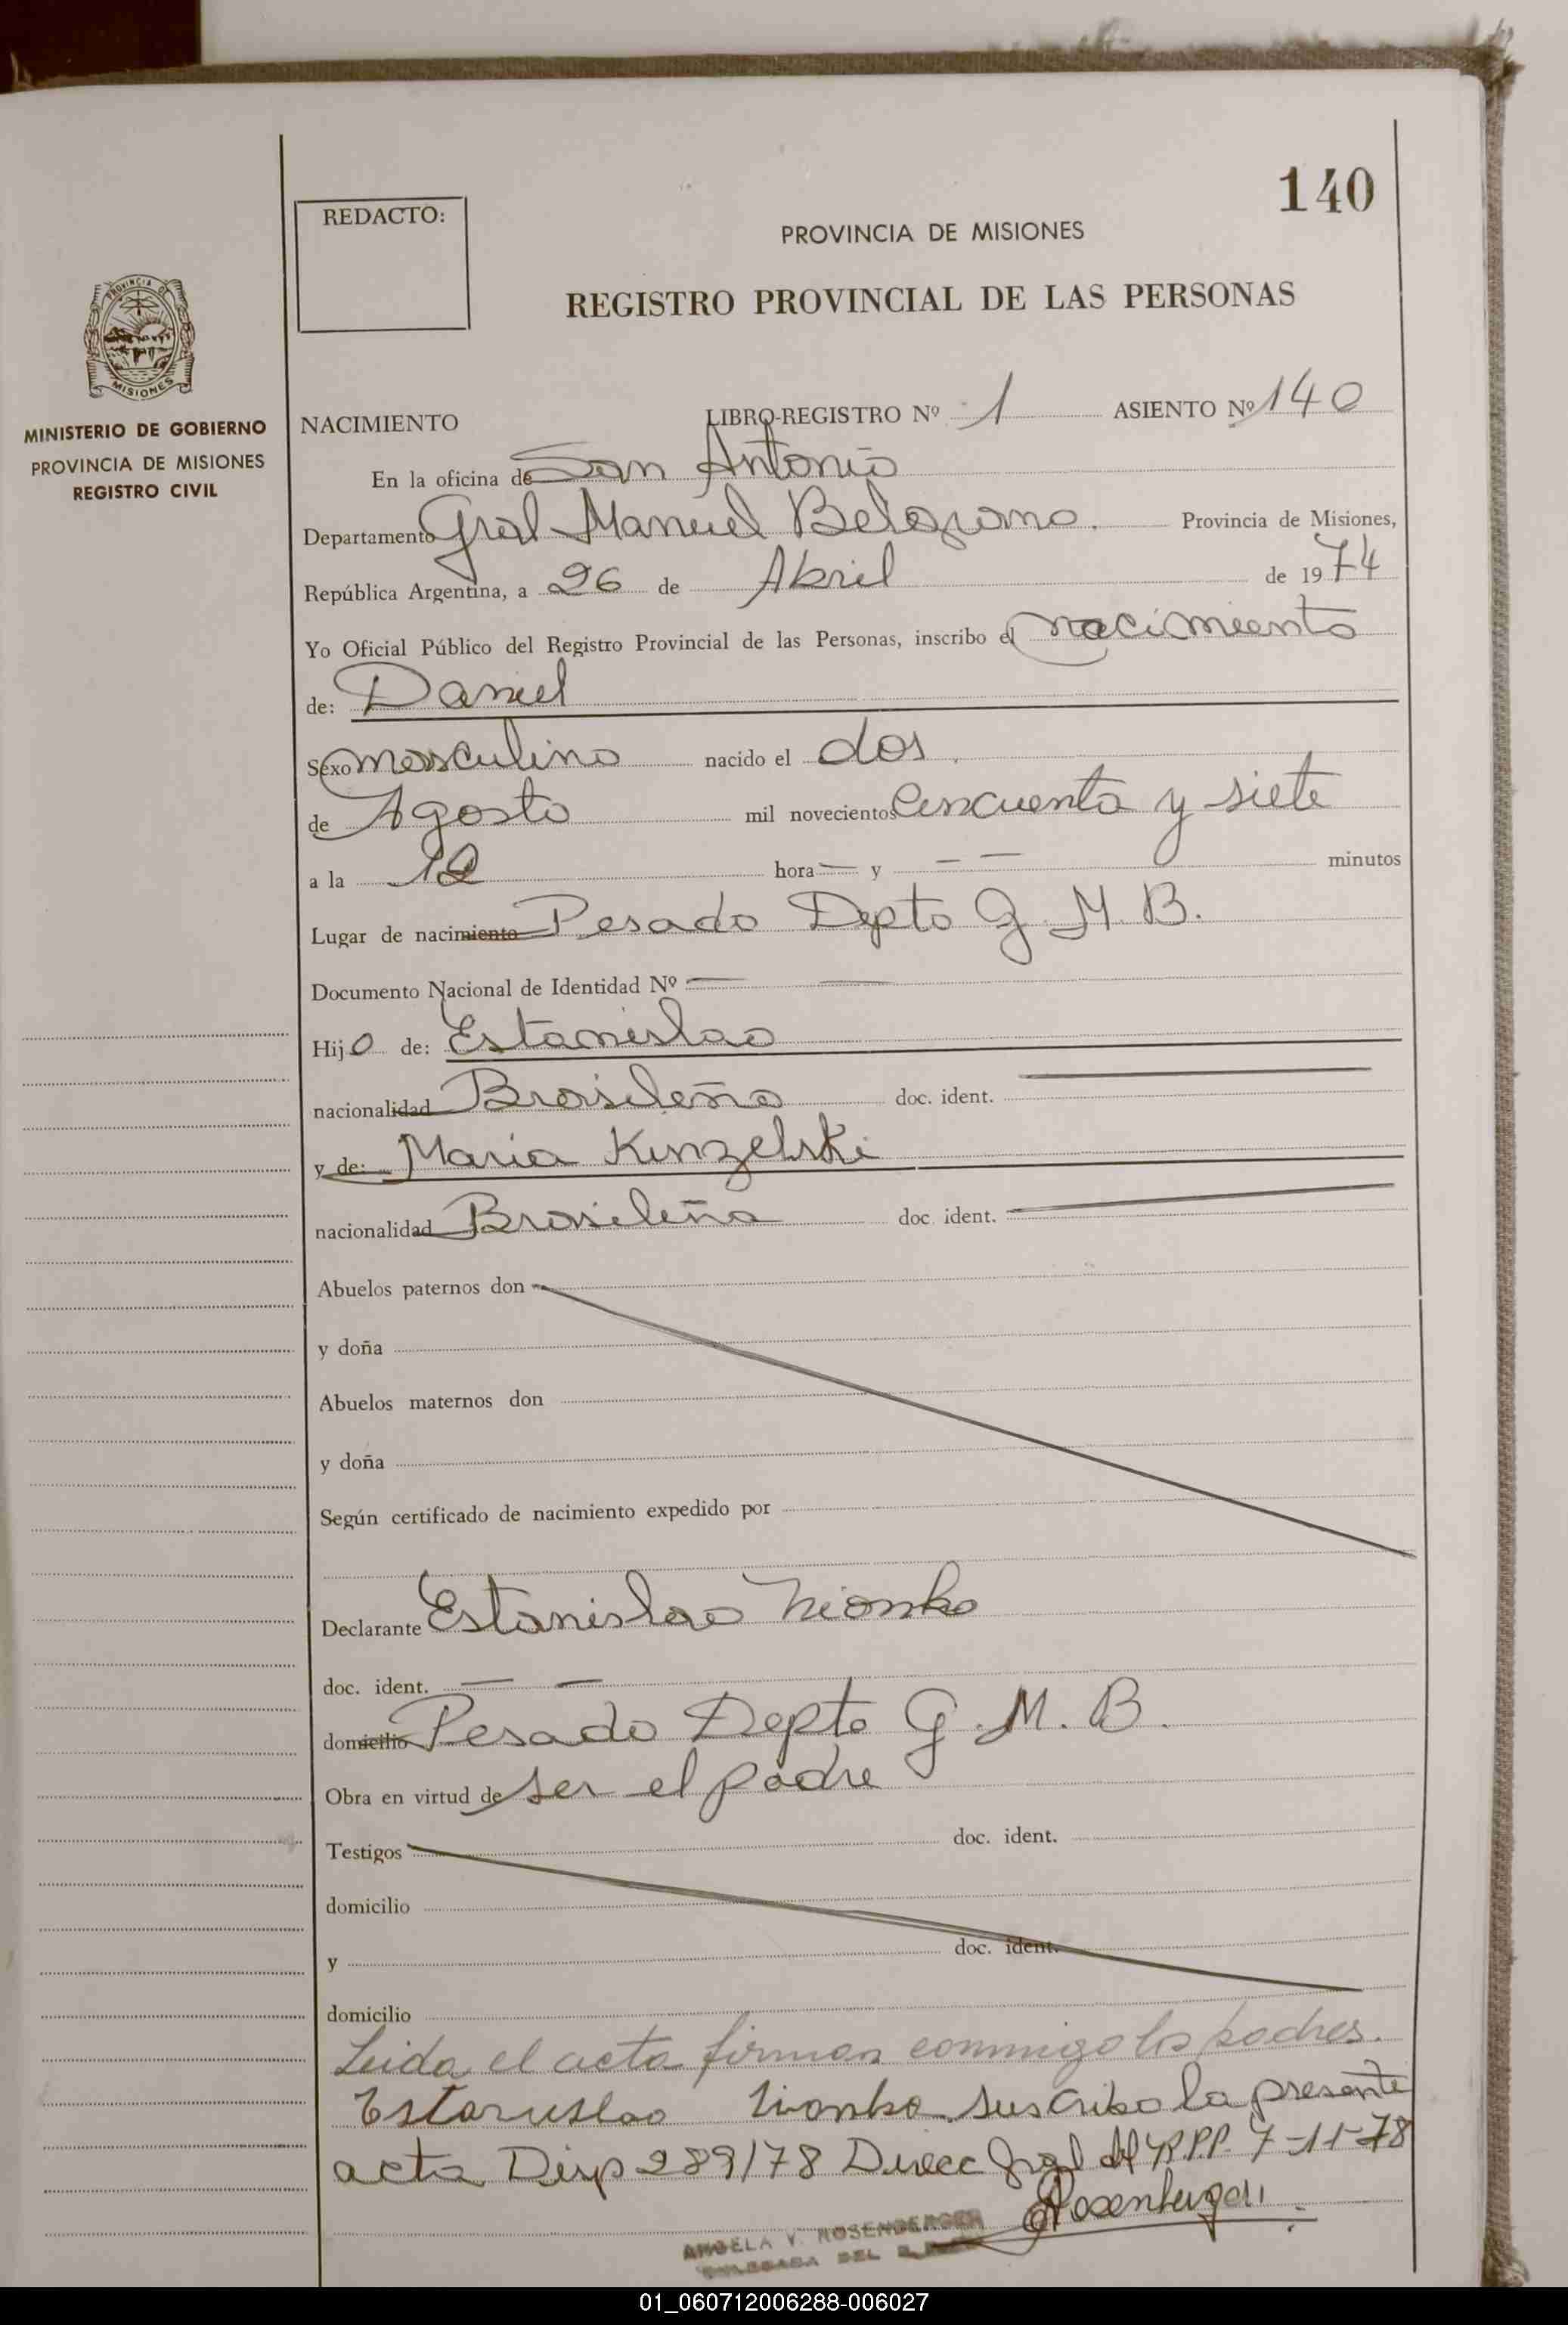 140
REDACTO:
PROVINCIA DE MISIONES
REGISTRO PROVINCIAL DE LAS PERSONAS
PROVINCIA DE
MISIONES
MINISTERIO DE GOBIERNO
PROVINCIA DE MISIONES
REGISTRO CIVIL
NACIMIENTO LIBRO-REGISTRO Nº 1 ASIENTO Nº 140
En la oficina de San Antonio
Departamento Gral Manuel Belgrano. Provincia de Misiones,
República Argentina, a 26 de Abril de 1974
Yo Oficial Público del Registro Provincial de las Personas, inscribo el nacimiento
de: Daniel
Sexo masculino nacido el dos
de Agosto mil novecientos cincuenta y siete
a la 12 hora — y — — minutos
Lugar de nacimiento Pesado Depto G. M. B.
Documento Nacional de Identidad Nº — —
Hijo de: Estanislao
nacionalidad Brasileño doc. ident. —
y de: Maria Kinzelski
nacionalidad Brasileña doc. ident. —
Abuelos paternos don
y doña
Abuelos maternos don
y doña
Según certificado de nacimiento expedido por
Declarante Estanislao
doc. ident. — —
domicilio Pesado Depto G. M. B.
Obra en virtud de ser el padre
Testigos doc. ident.
domicilio
y doc. ident.
domicilio
Leida el acta firman conmigo los padres.
Estanislao suscribo la presente
acta Disp 289/78 Direcc Gral del RPP. 7-11-78
Rosenberger
ANGELA V. ROSENBERGER
DELEGADA DEL
01_060712006288-006027